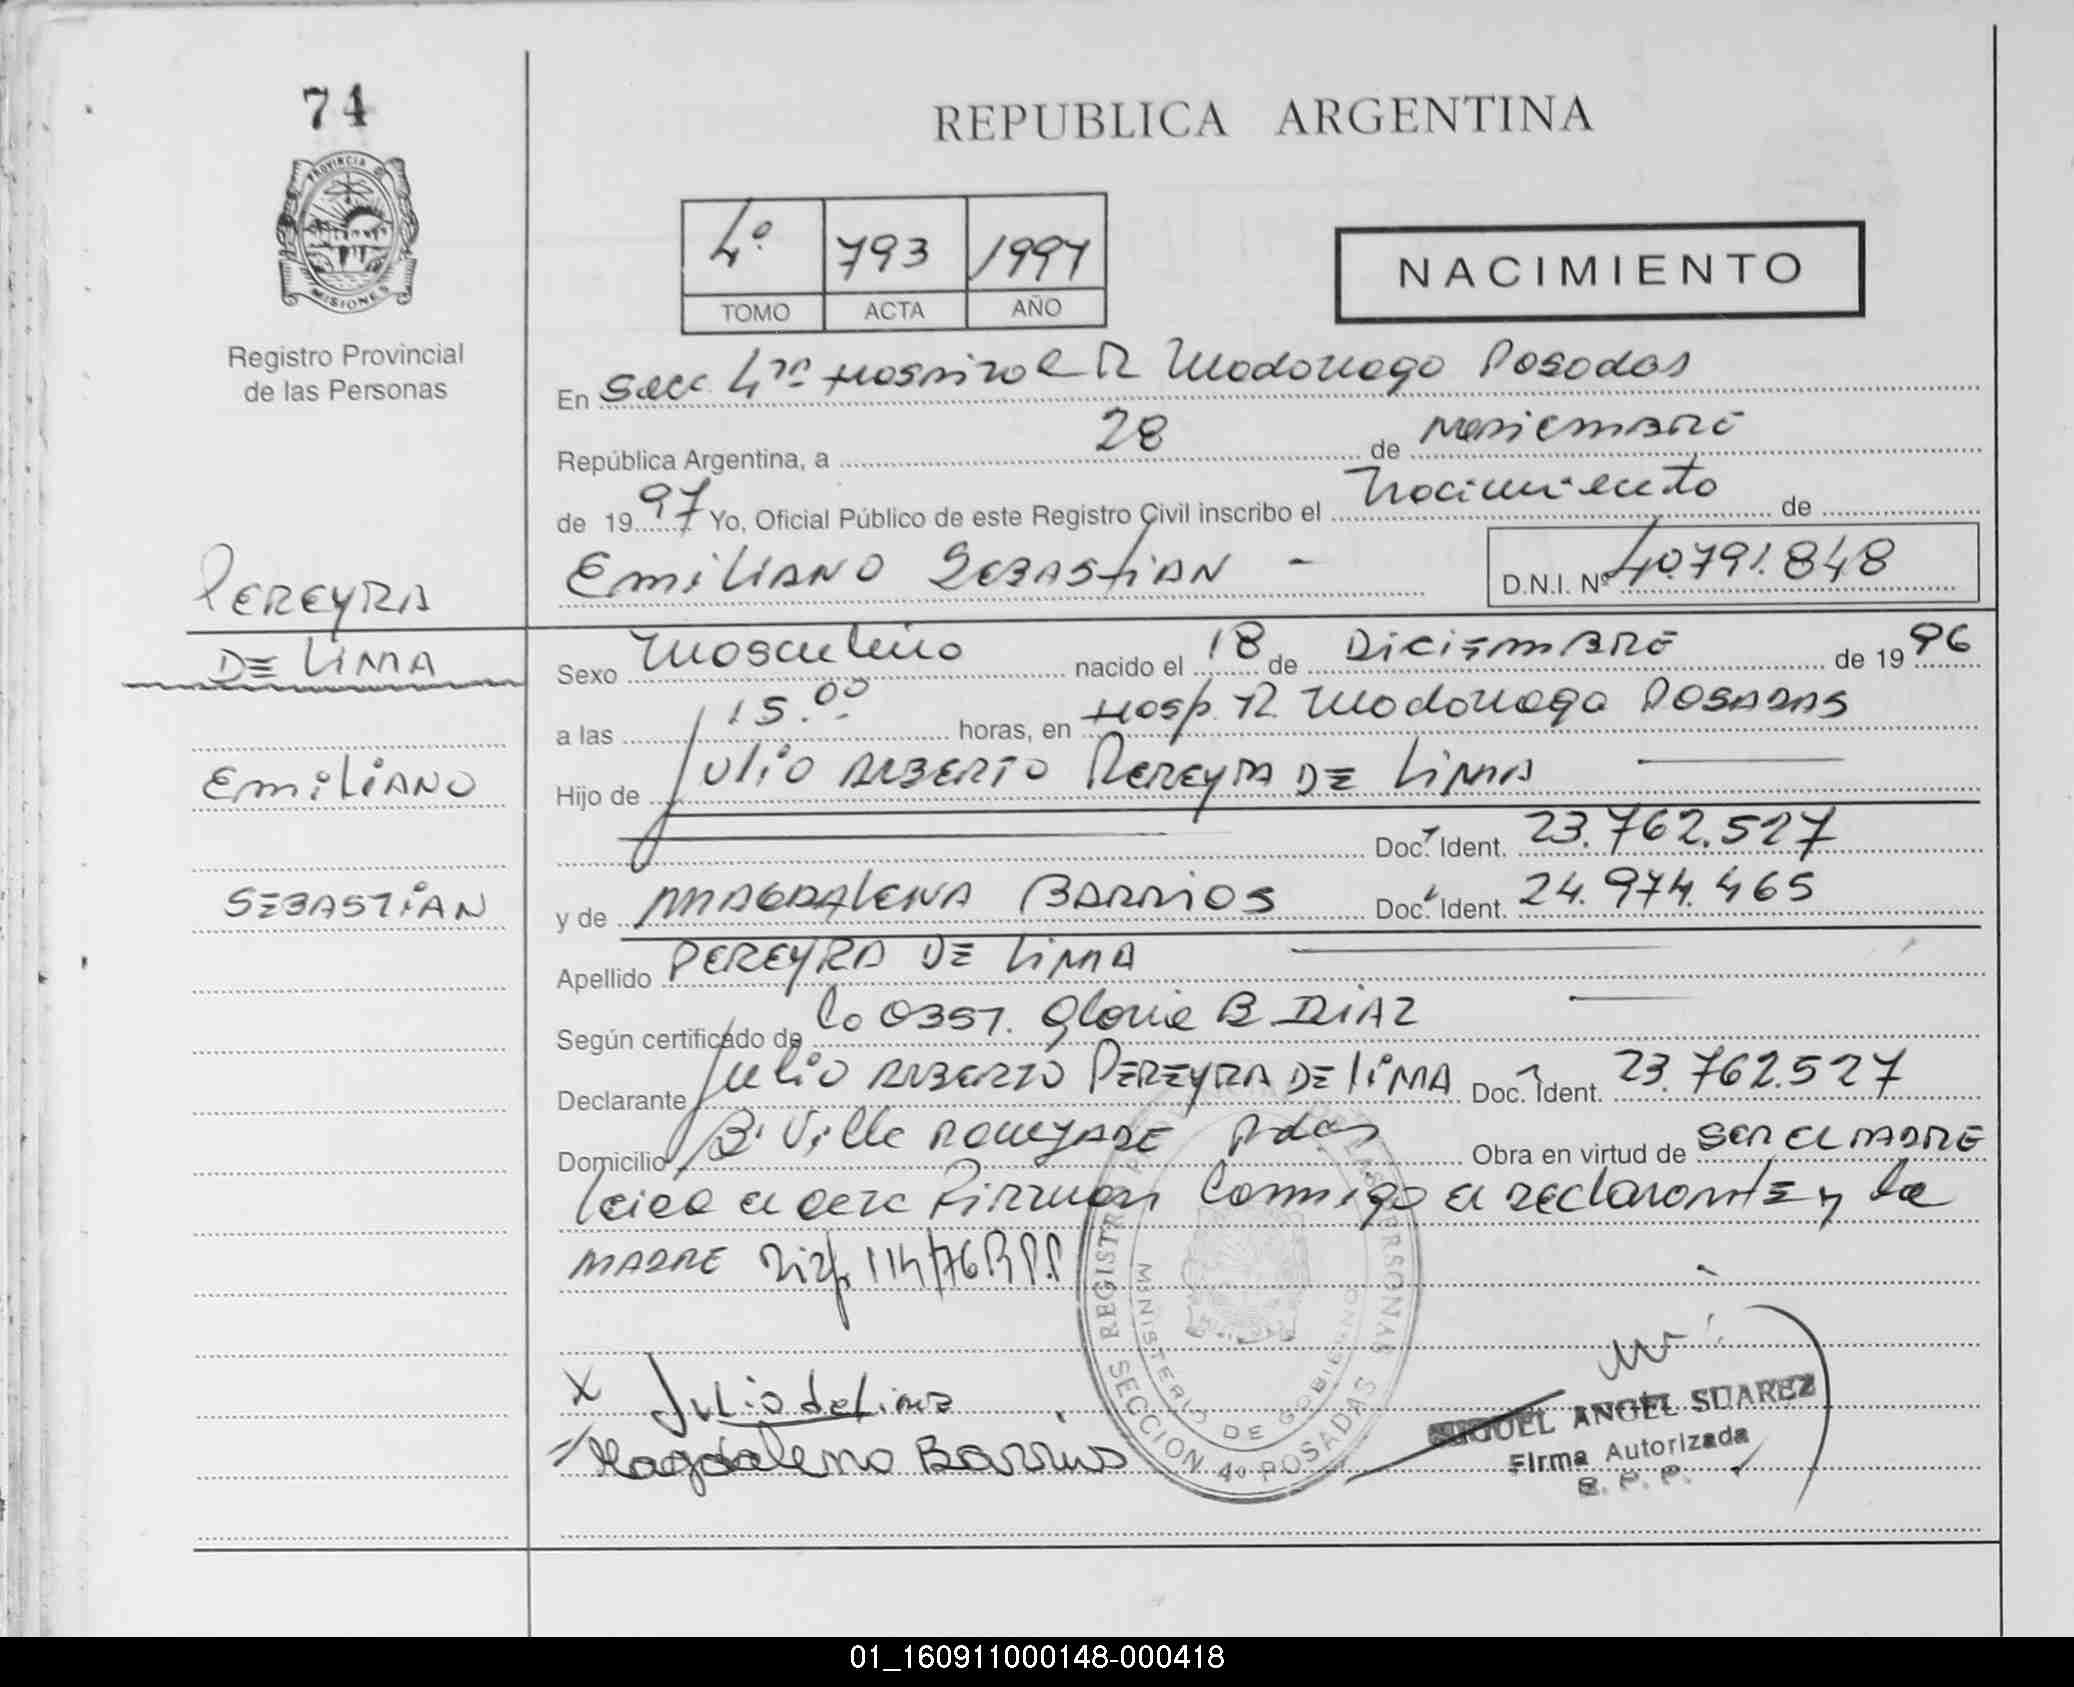 74
PROVINCIA DE
MISIONES
Registro Provincial
de las Personas
PEREYRA
DE LIMA
EMILIANO
SEBASTIAN
REPUBLICA ARGENTINA
4º 793 1997
TOMO ACTA AÑO
NACIMIENTO
En Secc 4ta Hospital R Madariaga Posadas
República Argentina, a 28 de Noviembre
de 1997 Yo, Oficial Público de este Registro Civil inscribo el Nacimiento de
EMILIANO SEBASTIAN - D.N.I. Nº 40.791.848
Sexo Masculino nacido el 18 de DICIEMBRE de 1996
a las 15.00 horas, en Hosp. R. Madariaga POSADAS
Hijo de Julio ALBERTO PEREYRA DE LIMA
Doc. Ident. 23.762.527
y de MAGDALENA BARRIOS Doc. Ident. 24.974.465
Apellido PEREYRA DE LIMA
Según certificado de Lo OBST. Gloria B DIAZ
Declarante Julio ALBERTO PEREYRA DE LIMA Doc. Ident. 23.762.527
Domicilio Bº Ville Pdas Obra en virtud de SER EL PADRE
Leida el acta Firman Conmigo el declarante y la
MADRE 114/76 R.P.P.
X Julio de Lima
Magdalena Barrios
REGISTRO PROVINCIAL DE LAS PERSONAS
MINISTERIO DE GOBIERNO
SECCION 4º POSADAS
MIGUEL ANGEL SUAREZ
Firma Autorizada
R. P. P.
01_160911000148-000418